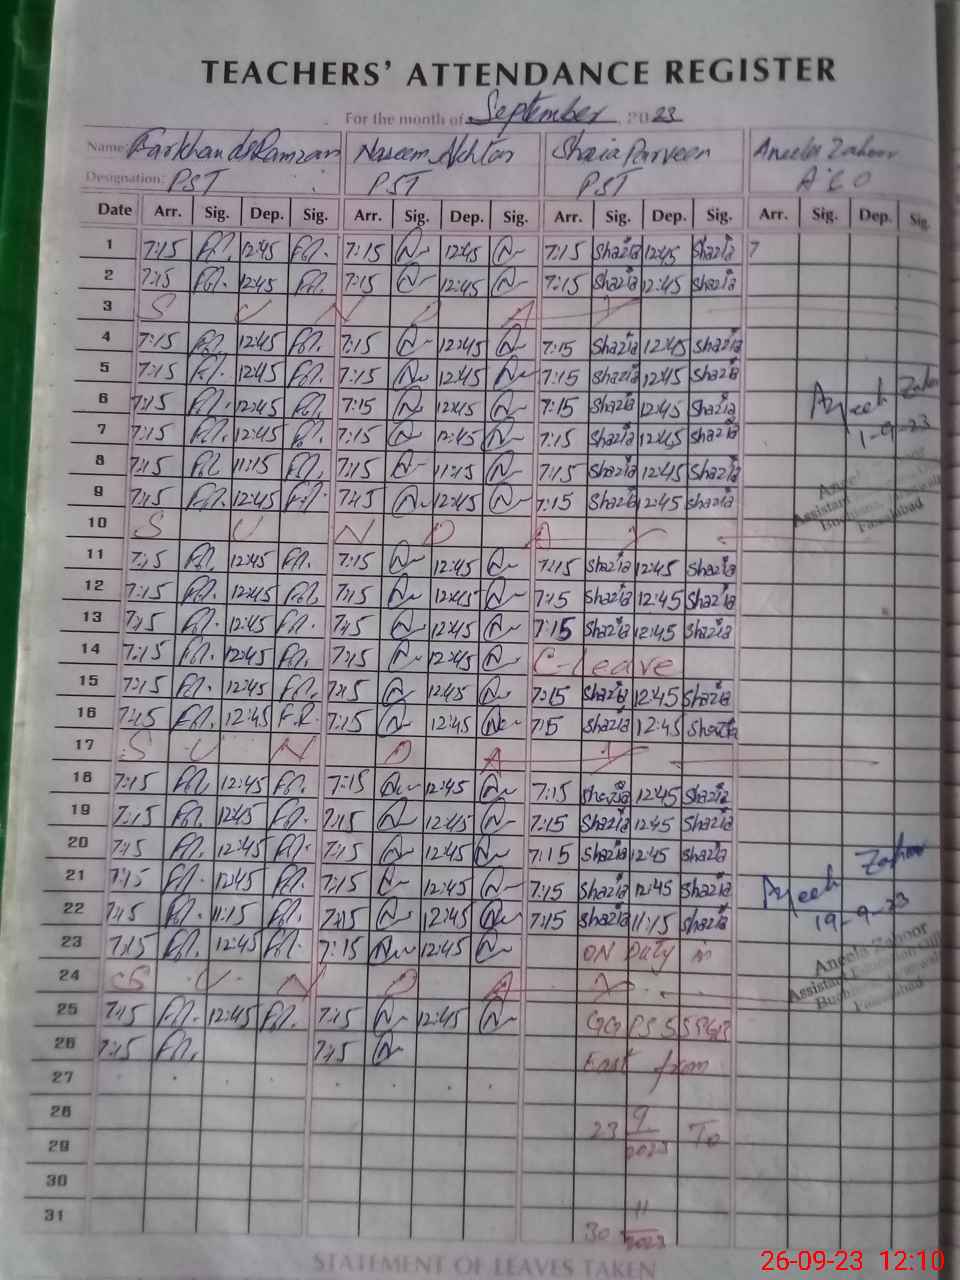 TEACHERS' ATTENDANCE REGISTER
For the month of September 2023
Name Farkhanda Ramzan Naseem Akhtar Shazia Parveen Aneela Zahoor
Designation: PST PST PST AEO
Date Arr. Sig. Dep. Sig. Arr. Sig. Dep. Sig. Arr. Sig. Dep. Sig. Arr. Sig. Dep. Sig.
1 7:15 12:45 7:15 12:45 7:15 Shazia 12:45 Shazia 7
2 7:15 12:45 7:15 12:45 7:15 Shazia 12:45 Shazia
3 S U N D A Y
4 7:15 12:45 7:15 12:45 7:15 Shazia 12:45 Shazia
5 7:15 12:45 7:15 12:45 7:15 Shazia 12:45 Shazia
6 7:15 12:45 7:15 12:45 7:15 Shazia 12:45 Shazia
7 7:15 12:45 7:15 12:45 7:15 Shazia 12:45 Shazia
1-9-23
8 7:15 11:15 7:15 11:15 7:15 Shazia 12:45 Shazia
9 7:15 12:45 7:15 12:45 7:15 Shazia 12:45 Shazia
10 S U N D A Y
Assistant
Faisalabad
11 7:15 12:45 7:15 12:45 7:15 Shazia 12:45 Shazia
12 7:15 12:45 7:15 12:45 7:15 Shazia 12:45 Shazia
13 7:15 12:45 7:15 12:45 7:15 Shazia 12:45 Shazia
14 7:15 12:45 7:15 12:45 C-leave
15 7:15 12:45 7:15 12:45 7:15 Shazia 12:45 Shazia
16 7:15 12:45 F.R. 7:15 12:45 7:15 Shazia 12:45 Shazia
17 S U N D A Y
18 7:15 12:45 7:15 12:45 7:15 Shazia 12:45 Shazia
19 7:15 12:45 7:15 12:45 7:15 Shazia 12:45 Shazia
20 7:15 12:45 7:15 12:45 7:15 Shazia 12:45 Shazia
21 7:15 12:45 7:15 12:45 7:15 Shazia 12:45 Shazia
22 7:15 11:15 7:15 12:45 7:15 Shazia 11:15 Shazia
19-9-23
23 7:15 12:45 7:15 12:45 ON Duty in
Aneela Zahoor
24 S U N D A Y
Assistant Education
Faisalabad
25 7:15 12:45 7:15 12:45 GGPS
26 7:15 7:15 East from
27
28 23 9 2023 To
29
30
31 30 11 2023
STATEMENT OF LEAVES TAKEN
26-09-23 12:10